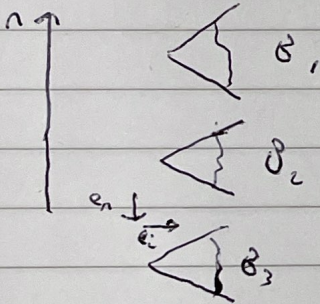 n
θ₁
θ₂
eₙ
eᵢ
θ₃